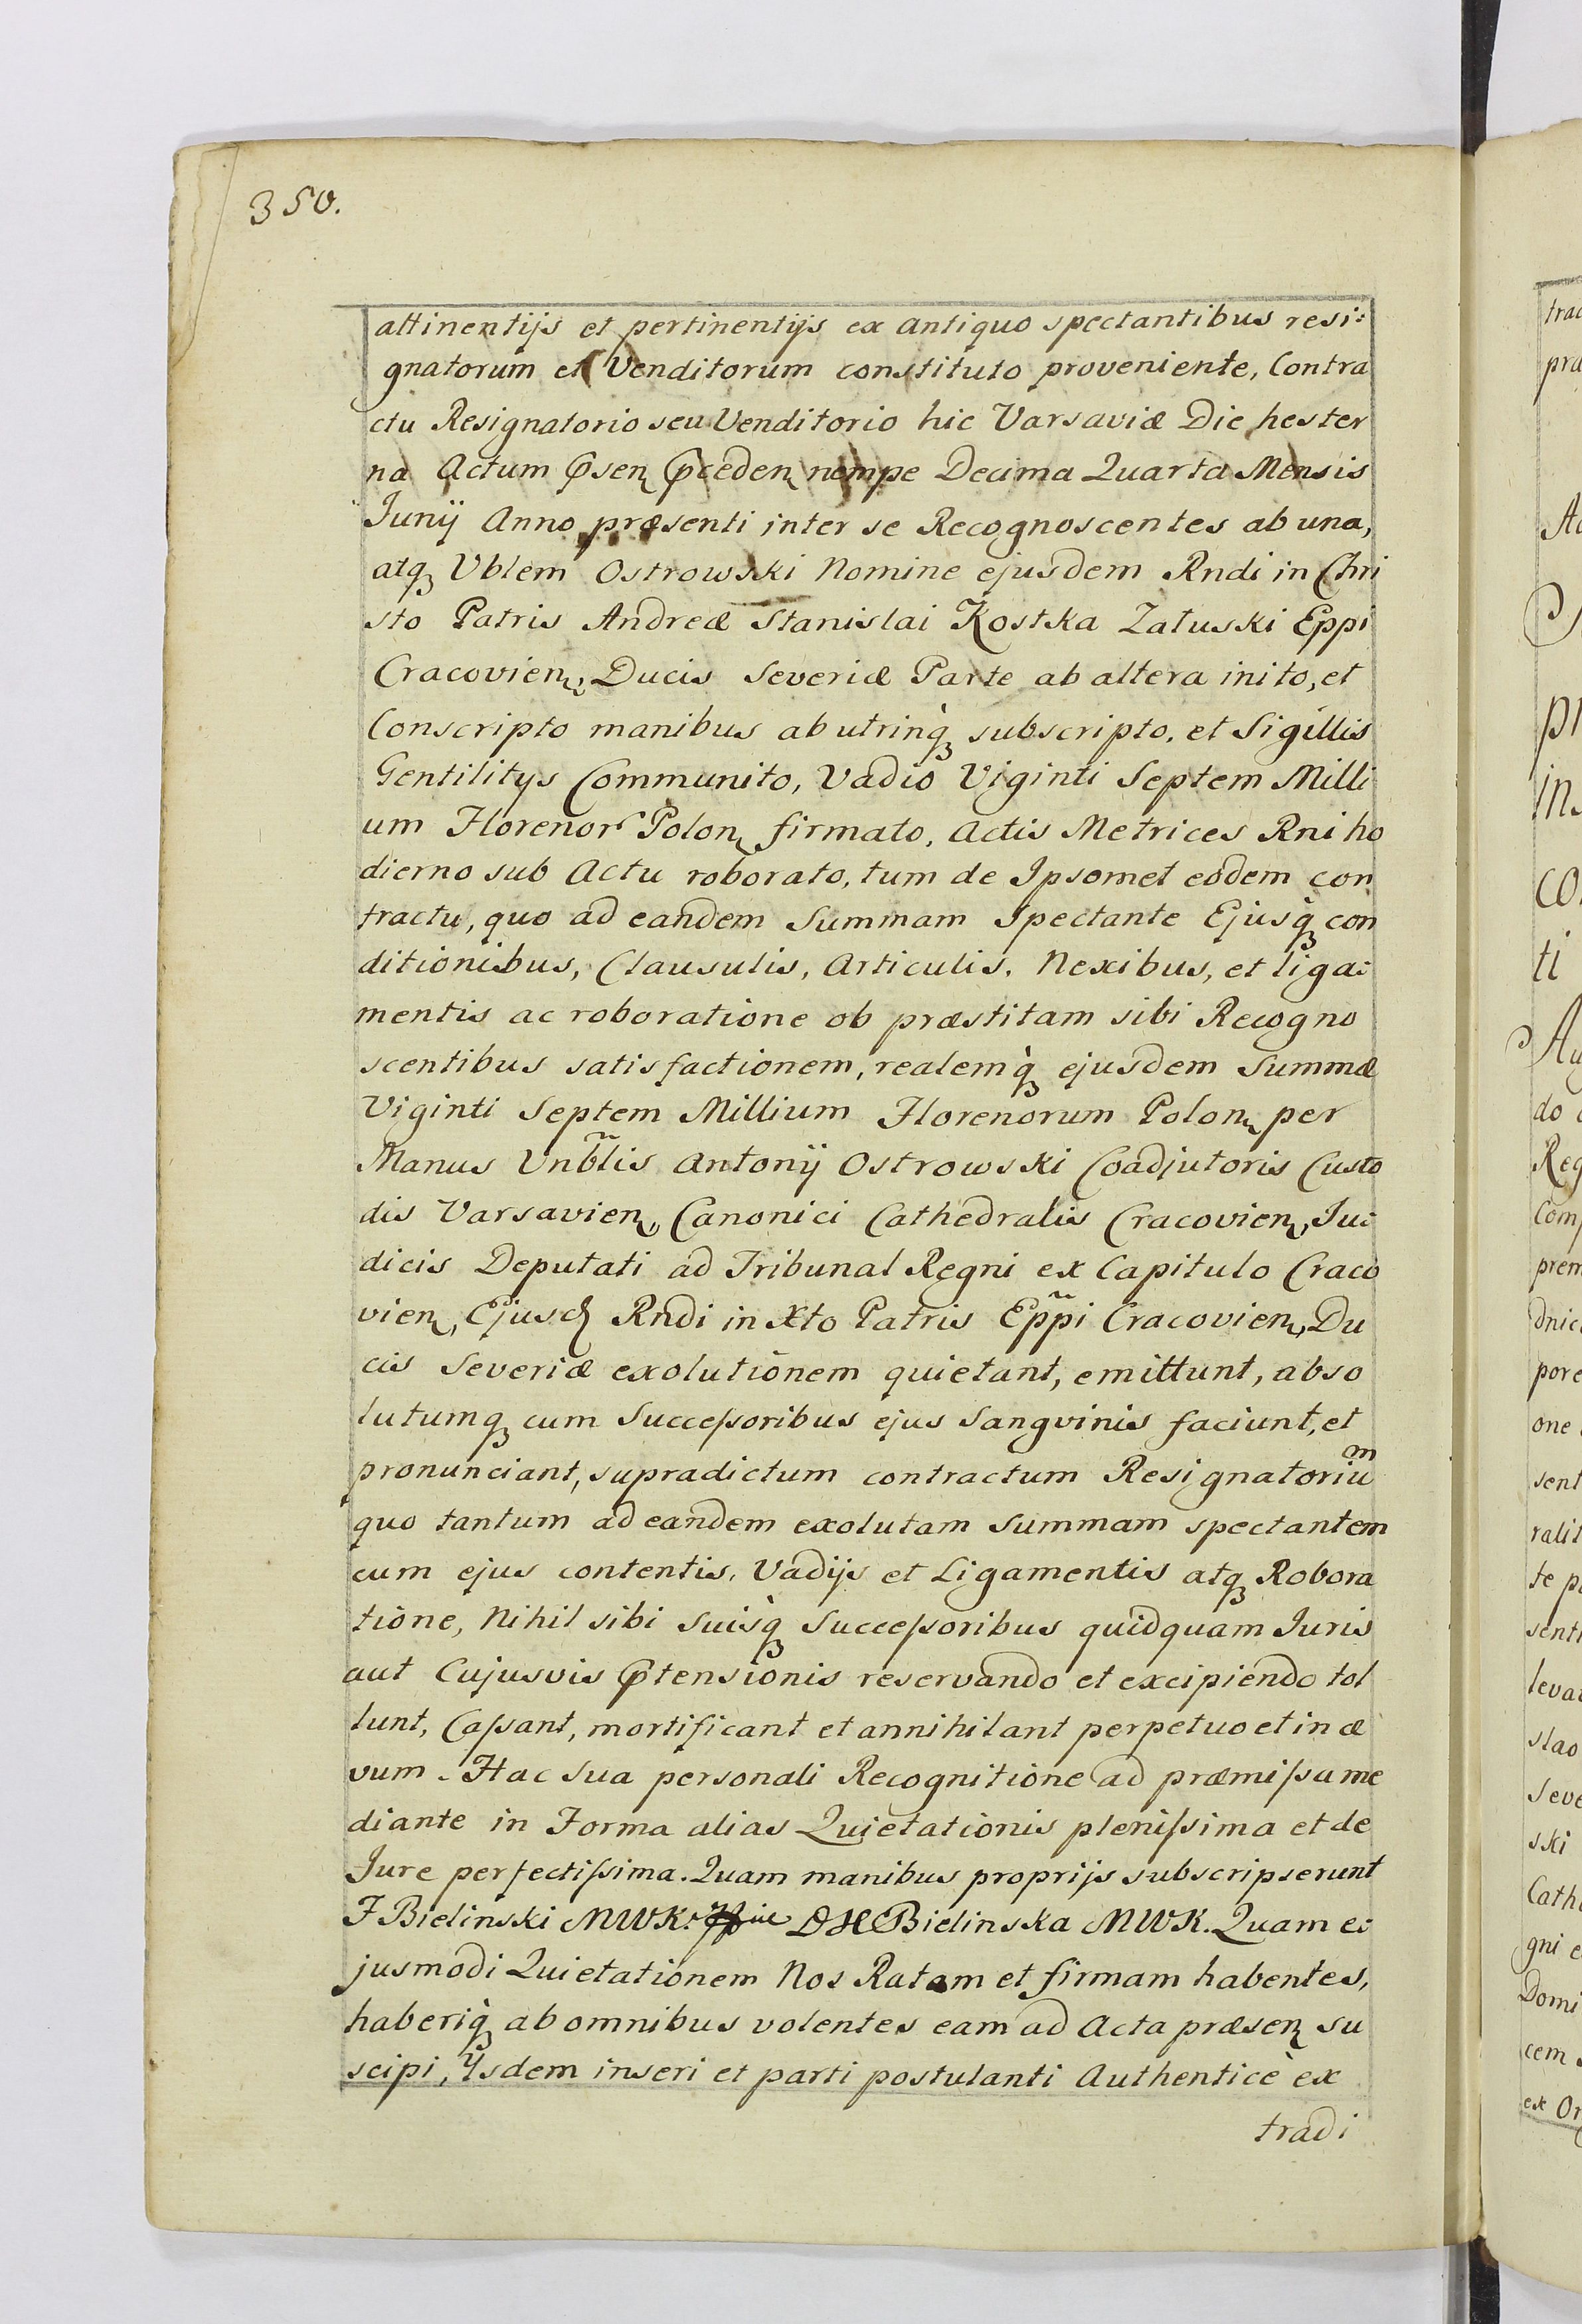 350.
attinentijs et pertinentijs ex antiquo spectantibus resi:
gnatorum et Venditorum constituto proveniente, Contra
ctu Resignatorio seu Venditorio hic Varsaviæ Die hester
na Actum Psen Pceden nempe Decima Quarta Mensis
Junij Anno præsenti inter se Recognoscentes ab una,
atq Vblem Ostrowski Nomine ejusdem Rndi in Chri
sto Patris Andreæ Stanislai Kostka Zatuski Eppi
Cracovien, Ducis Severiæ Parte ab altera inito, et
Conscripto manibus ab utrinq subscripto, et Sigillis
Gentilitys Communito, Vadio Viginti Septem Milli
um Florenor Polon firmato, Actis Metrices Rni ho
dierno sub Actu roborato, tum de Ipsomet eodem con
tractu, quo ad eandem Summam Spectante Ejusq con
ditionibus, Clausulis, Articulis, Nexibus, et liga:
mentis ac roboratione ob præstitam sibi Recogno
scentibus satisfactionem, realemq ejusdem Summæ
Viginti Septem Millium Florenorum Polon per
Manus Vnblis Antonij Ostrowski Coadjutoris Custo
dis Varsavien, Canonici Cathedralis Cracovien, Ju:
dicis Deputati ad Tribunal Regni ex Capitulo Craco
vien, Ejusd Rndi in Xto Patris Eppi Cracovien, Du
cis Severiæ exolutionem quietant, emittunt, abso
lutumq cum Successoribus ejus Sangvinis faciunt, et
pronunciant, supradictum contractum Resignatorium
quo tantum ad eandem exolutam Summam spectantem
cum ejus contentis, Vadijs et Ligamentis atq Robora
tione, Nihil sibi suisq Successoribus quidquam Juris
aut Cujusvis Ptensionis reservando et excipiendo tol
lunt, Cassant, mortificant et annihilant perpetuo et in æ
vum. Hac sua personali Recognitione ad præmissa me
diante in Forma alias Quietationis plenissima et de
Jure perfectissima. Quam manibus proprijs subscripserunt
F Bielinski MWK. DH Bielinska MWK. Quam e:
jusmodi Quietationem Nos Ratam et firmam habentes,
haberiq ab omnibus volentes eam ad Acta præsen su
scipi, Ysdem inseri et parti postulanti Authenticè ex
tradi